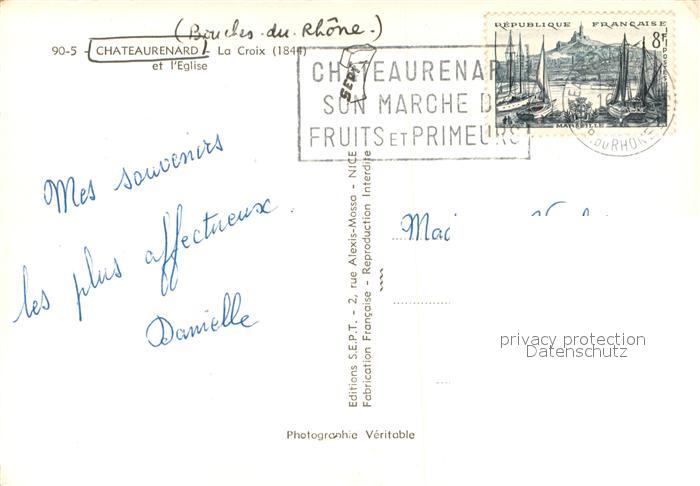 (Bouches-du-Rhône.)
90-5 - CHATEAURENARD - La Croix (1844)
et l'Eglise
SEPT
CHATEAURENARD
SON MARCHE DE
FRUITS ET PRIMEURS
RÉPUBLIQUE FRANÇAISE
8F
POSTES
MARSEILLE
DU RHONE
Mes souvenirs
les plus affectueux.
Danielle
Editions S.E.P.T. - 2, rue Alexis-Mossa - NICE
Fabrication Française - Reproduction Interdite
privacy protection
Datenschutz
Photographie Véritable